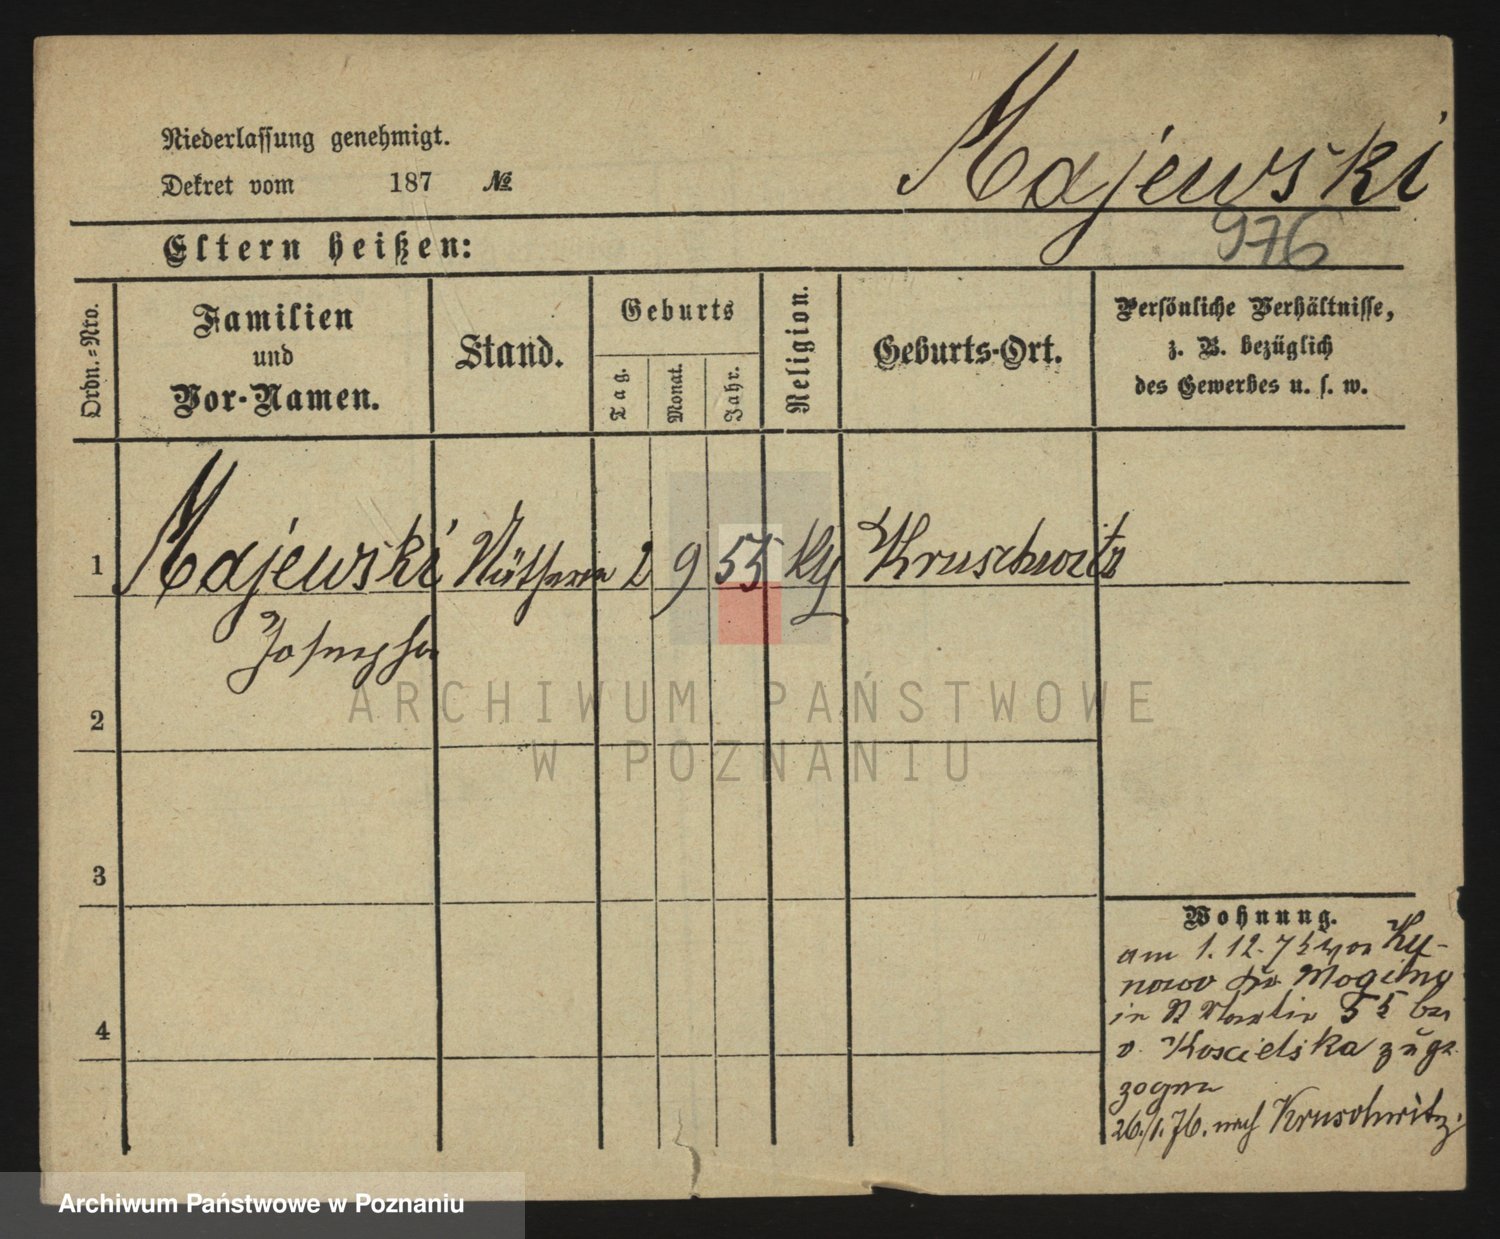 Niederlassung genehmigt.
Dekret vom 187 №
Majewski
976
Eltern heißen:
Ordn.=Nro.
Familien
und
Vor-Namen.
Stand.
Geburts
Tag.
Monat.
Jahr.
Religion.
Geburts-Ort.
Persönliche Verhältnisse,
z. B. bezüglich
des Gewerbes u. s. w.
1 Majewski Nätherin 2 9 55 Kruschwitz
Josepha
2
3
4
Wohnung.
am 1.12.75 von
Mogilno
in St Martin 55 bei
v. Koscielska zuge
zogen
26./1.76. nach Kruschwitz.
ARCHIWUM PAŃSTWOWE
W POZNANIU
Archiwum Państwowe w Poznaniu